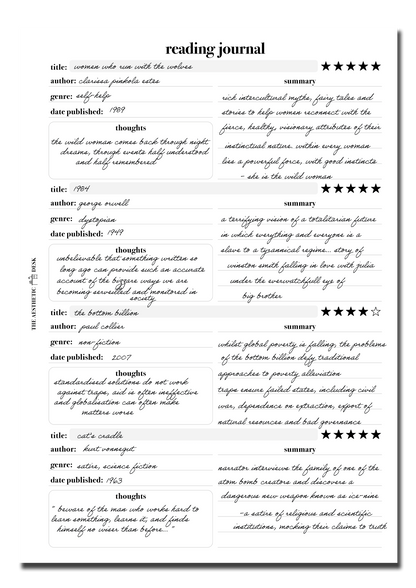 reading journal
title: women who run with the wolves ★★★★★
author: clarissa pinkola estes
genre: self-help
date published: 1989
thoughts
the wild woman comes back through night
dreams, through events half understood
and half remembered
summary
rich intercultural myths, fairy tales and
stories to help women reconnect with the
fierce, healthy, visionary attributes of their
instinctual nature. within every woman
lies a powerful force, with good instincts
- she is the wild woman
title: 1984 ★★★★★
author: george orwell
genre: dystopian
date published: 1949
thoughts
unbelievable that something written so
long ago can provide such an accurate
account of the biggere ways we are
becoming surveilled and monitored in
society
summary
a terrifying vision of a totalitarian future
in which everything and everyone is a
slave to a tyrannical regime... story of
winston smith falling in love with julia
under the everwatchfull eye of
big brother
THE AESTHETIC DESK
title: the bottom billion ★★★★☆
author: paul collier
genre: non-fiction
date published: 2007
thoughts
standardised solutions do not work
against traps, aid is often ineffective
and globalisation can often make
matters worse
summary
whilst global poverty is falling, the problems
of the bottom billion defy traditional
approaches to poverty alleviation
traps ensure failed states, including civil
war, dependence on extraction, export of
natural resources and bad governance
title: cat's cradle ★★★★★
author: kurt vonnegut
genre: satire, science fiction
date published: 1963
thoughts
" beware of the man who works hard to
learn something, learns it, and finds
himself no wiser than before... "
summary
narrator interviews the family of one of the
atom bomb creators and discovers a
dangerous new weapon known as ice-nine
-a satire of religious and scientific
institutions, mocking their claims to truth